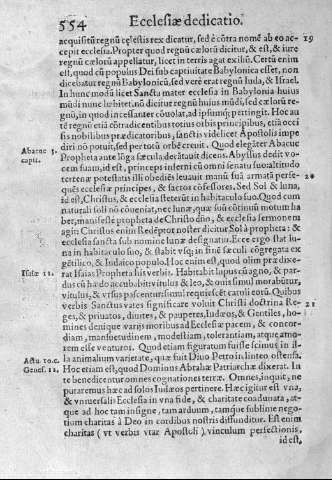 554 Ecclesiæ dedicatio.
acquisitū regnū celestis rex dicatur, sed è cōtra nomē ab eo acce- 19
cepit ecclesia. Propter quod regnū cælorū dicitur, & est, & iure
regnū cælorū appellatur, licet in terris agat exiliū. Certū enim
est, quod cū populus Dei sub captiuitate Babylonica esset, non
dicebatur regnū Babylonicū, sed verè erat regnū Iuda, & Israel.
In hunc modū licet Sancta mater ecclesia in Babylonia huius
mūdi nunc habitet, nō dicitur regnū huius mūdi, sed cælorū re-
gnū, in quod incessanter cōuolat, ad ipsumq; pertingit. Hoc au
tē regnū etiā cōtradicentibus totius orbis principibus, etiā occi
sis nobilibus prædicatoribus, sanctis videlicet Apostolis impe
diri nō potuit, sed per totū orbē creuit. Quod elegāter Abacuc
Abacuc 3. capit.
Propheta ante lōga sæcula decātauit dicens. Abyssus dedit vo-
cem suam, id est, princeps inferni cū omni senatu suo altitudo
terrenæ potestatis illi obediēs leuauit manū suā armatā perse- 20
quēs ecclesiæ principes, & sacros cōfessores. Sed Sol & luna,
id est, Christus, & ecclesia steterūt in habitaculo suo. Quod cum
naturali soli nō cōueniat, nec lunæ, quæ sub cōtinuo motum ha
ber, manifestè propheta de Christo dño, & ecclesia sermonem
agit: Christus enim Redēptor noster dicitur Sol à propheta: &
ecclesia sancta sub nomine lunæ designatur. Ecce ergo stat lu-
na in habitaculo suo, & stabit vsq; in finē sæculi cōgregata ex
gētilico, & Iudaico populo. Hoc enim est, quod olim prædixe-
Isaiæ 11.
rat Isaias Propheta his verbis. Habitabit lupus cū agno, & par-
dus cū hædo accubabit: vitulus & leo, & ouis simul morabūtur,
vitulus, & vrsus pascentur: simul requiescēt catuli eorū. Quibus
verbis Sanctus vates significare voluit Christi doctrina Re- 21
ges, & priuatos, diuites, & pauperes, Iudæos, & Gentiles, ho-
mines denique varijs moribus ad Ecclesiæ pacem, & concor-
diam, mansuetudinem, modestiam, tolerantiam, atque amo-
rem esse venturos. Quod etiam figuratum fuisse scimus in il-
Actu. 10.c.
la animalium varietate, quæ fuit Diuo Petro in linteo ostensa.
Genes. 12.
Hoc etiam est, quod Dominus Abrahæ Patriarchæ dixerat. In
te benedicentur omnes cognationes terræ. Omnes, inquit, ne
putaremus hæc ad solos Iudæos pertinere. Hæc igitur est vna,
& vniuersalis Ecclesia in vna fide, & charitate coadunata, at-
que ad hoc tam insigne, tam arduum, tamque sublime nego-
tium charitas à Deo in cordibus nostris diffunditur. Est enim
charitas (vt verbis vtar Apostoli) vinculum perfectionis,
id est,